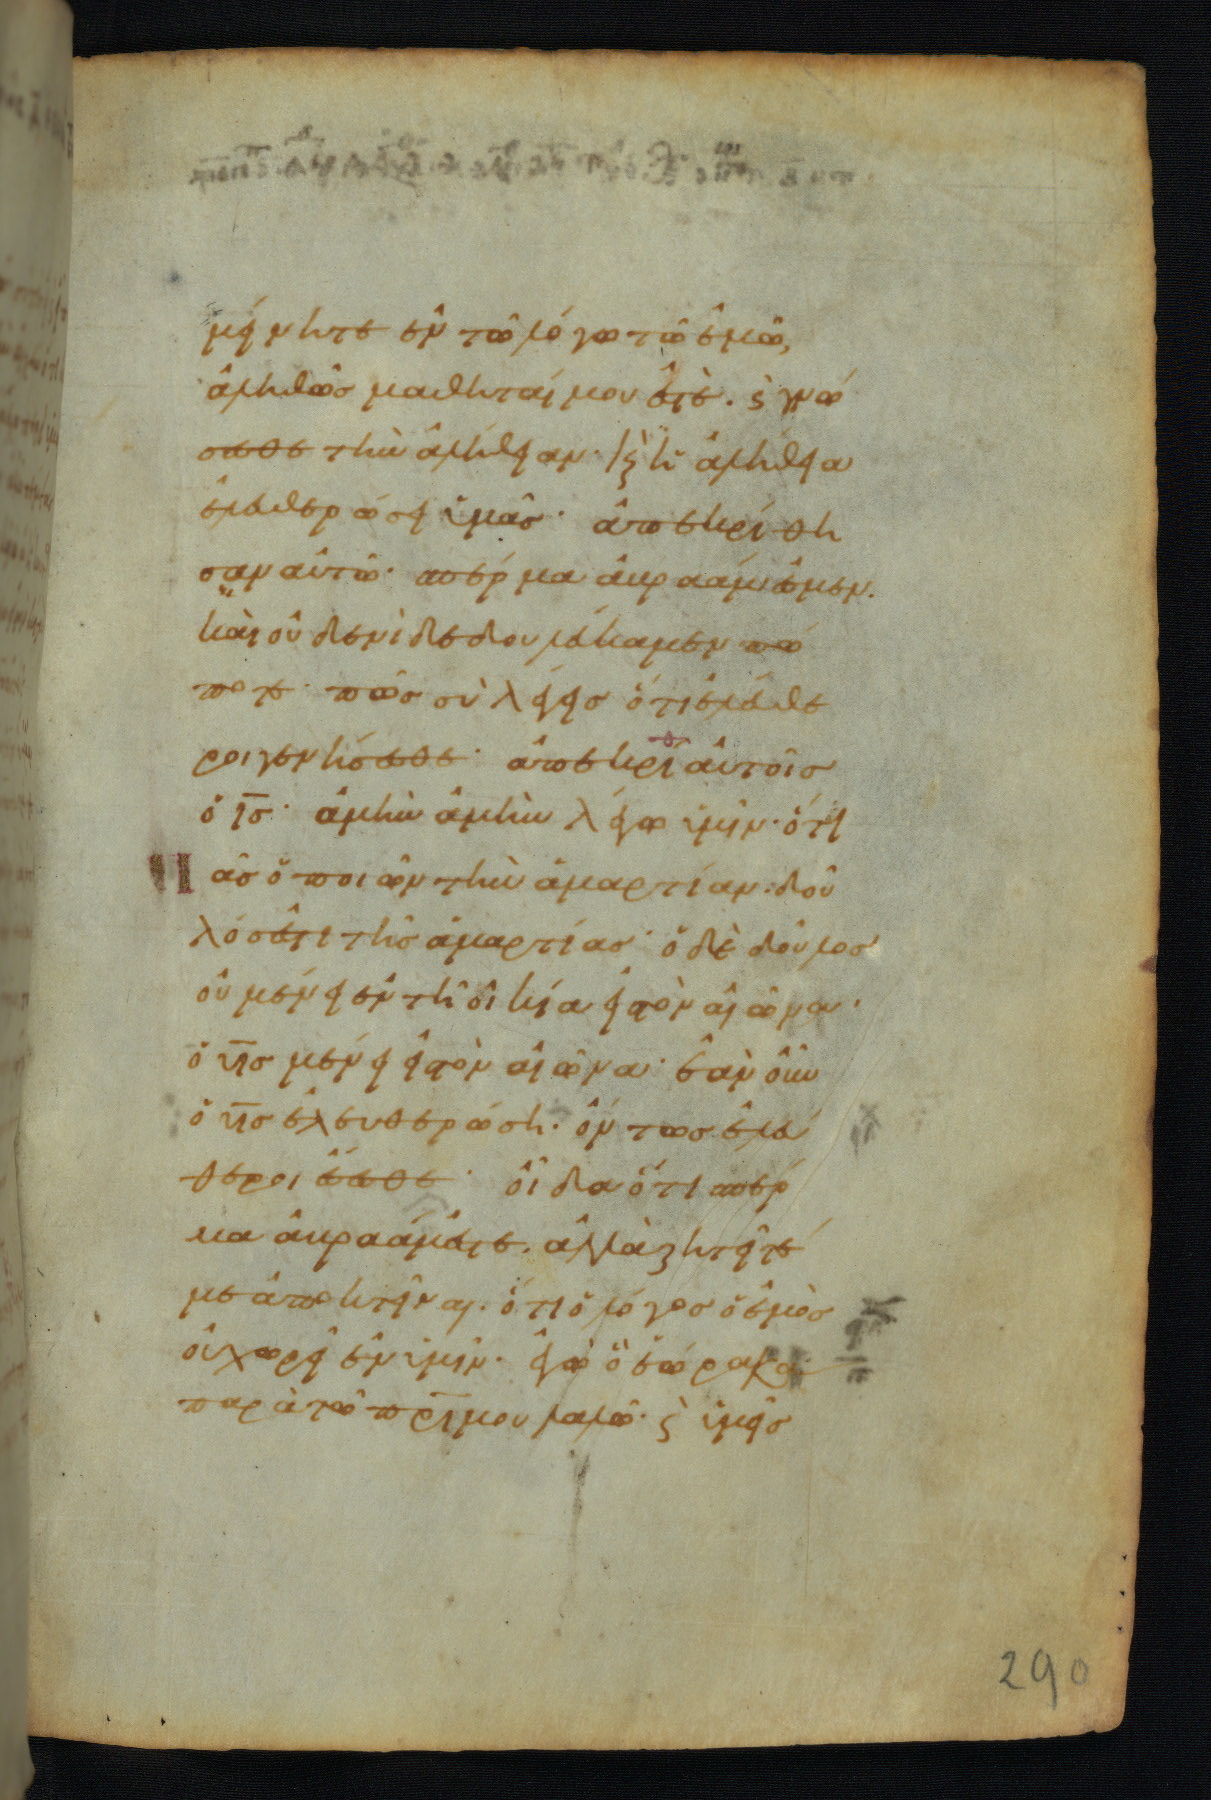 μείνητε ἐν τῶ λόγω τῶ ἐμῶ,
ἀληθῶς μαθηταί μου ἐστὲ. ϛ γνώ
σεσθε τὴν ἀλήθειαν· ϛ ἡ ἀλήθεια
ἐλευθερώσει ὑμᾶς· ἀπεκρίθη
σαν αὐτῶ· σπέρμα ἀβραάμ ἐσμεν.
καὶ οὐδενὶ δεδουλεύκαμεν πώ
ποτε· πῶς σὺ λέγεις ὅτι ἐλεύθε
ροι γενήσεσθε· ἀπεκρίθ αὐτοῖς
ὁ ις· ἀμὴν ἀμὴν λέγω ὑμῖν· ὅτι
Πᾶς ὁ ποιῶν τὴν ἁμαρτίαν· δοῦ
λός ἐστι τῆς ἁμαρτίας· ὁ δὲ δοῦλος
οὐ μένει ἐν τῆ οἰκία εἰς τὸν αἰῶνα·
ὁ υις μένει εἰς τὸν αἰῶνα· ἐὰν οὖν
ὁ υις ἐλευθερώση· ὄντως ἐλεύ
θεροι ἔσεσθε· οἶδα ὅτι σπέρ
μα ἀβραάμ ἐστε. ἀλλὰ ζητεῖτέ
με ἀποκτεῖναι. ὅτι ὁ λόγος ὁ ἐμὸς
οὐ χωρεῖ ἐν ὑμῖν· ἐγὼ ὃ ἑώρακα
παρὰ τῶ πρι μου λαλῶ· ϛ ὑμεῖς
290